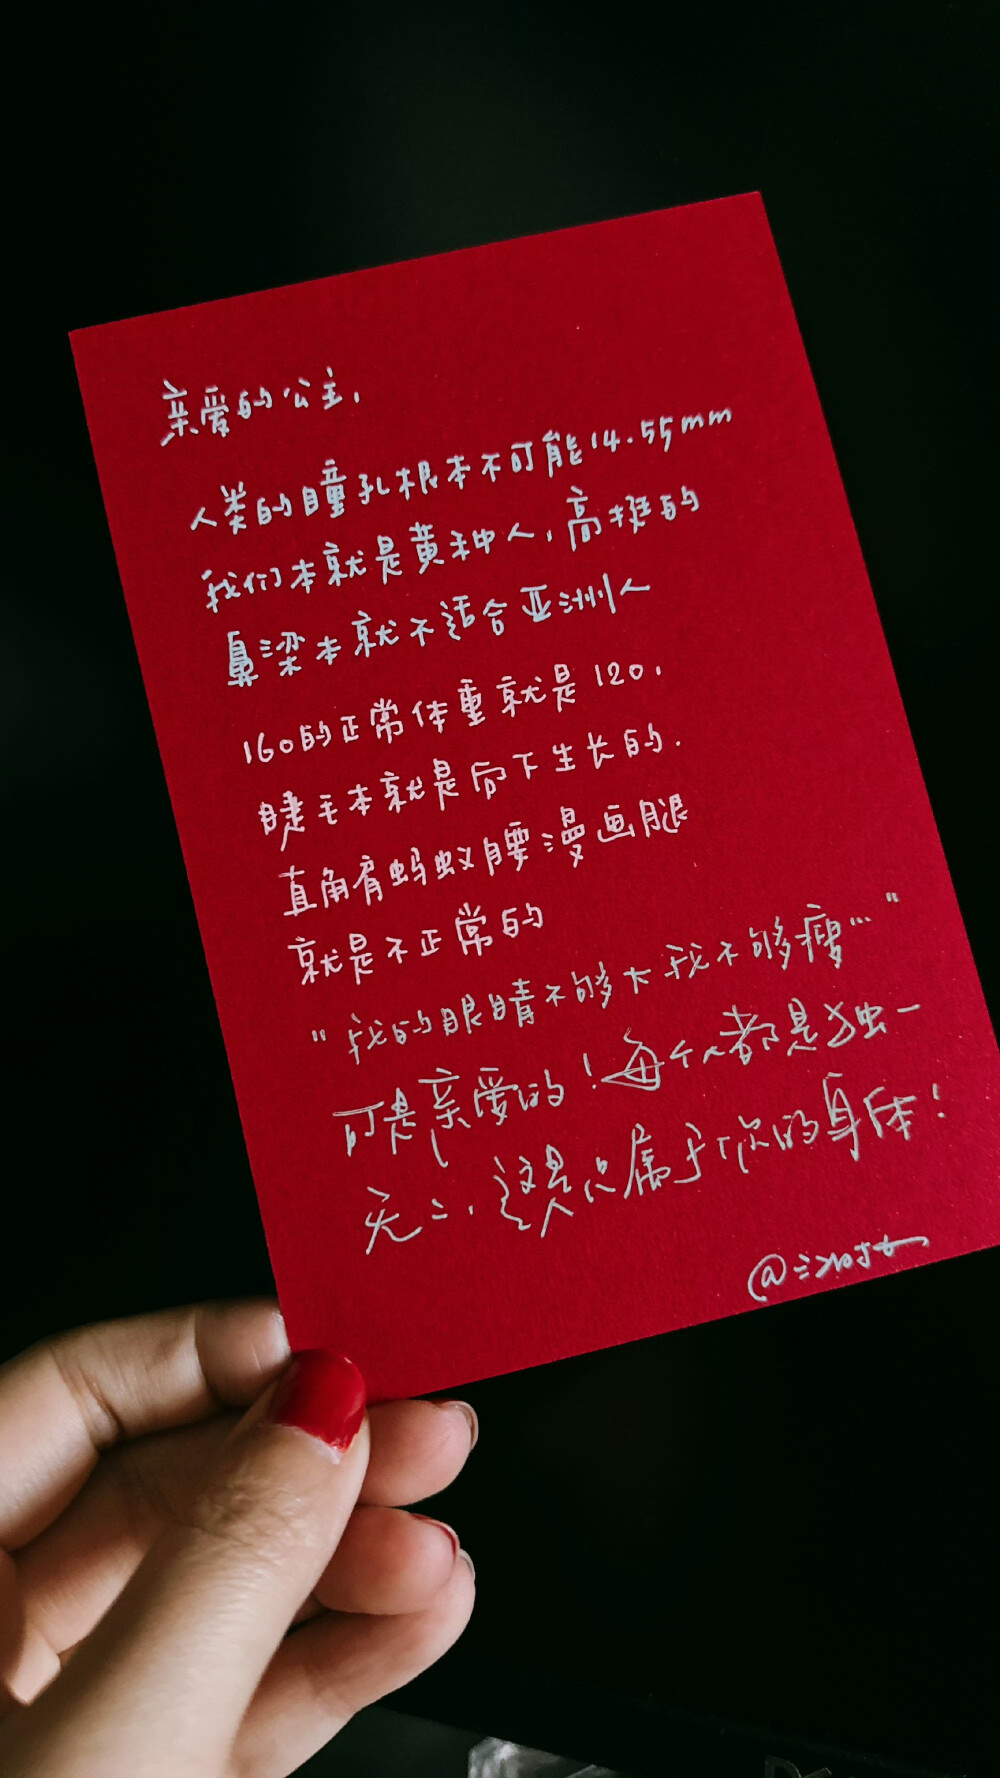 亲爱的公主,
人类的瞳孔根本不可能14.55mm
我们本就是黄种人,高挺的
鼻梁本就不适合亚洲人
160的正常体重就是120.
睫毛本就是向下生长的.
直角肩蚂蚁腰漫画腿
就是不正常的
"我的眼睛不够大我不够瘦…"
可是亲爱的!每个人都是独一
无二,这是只属于你的身体!